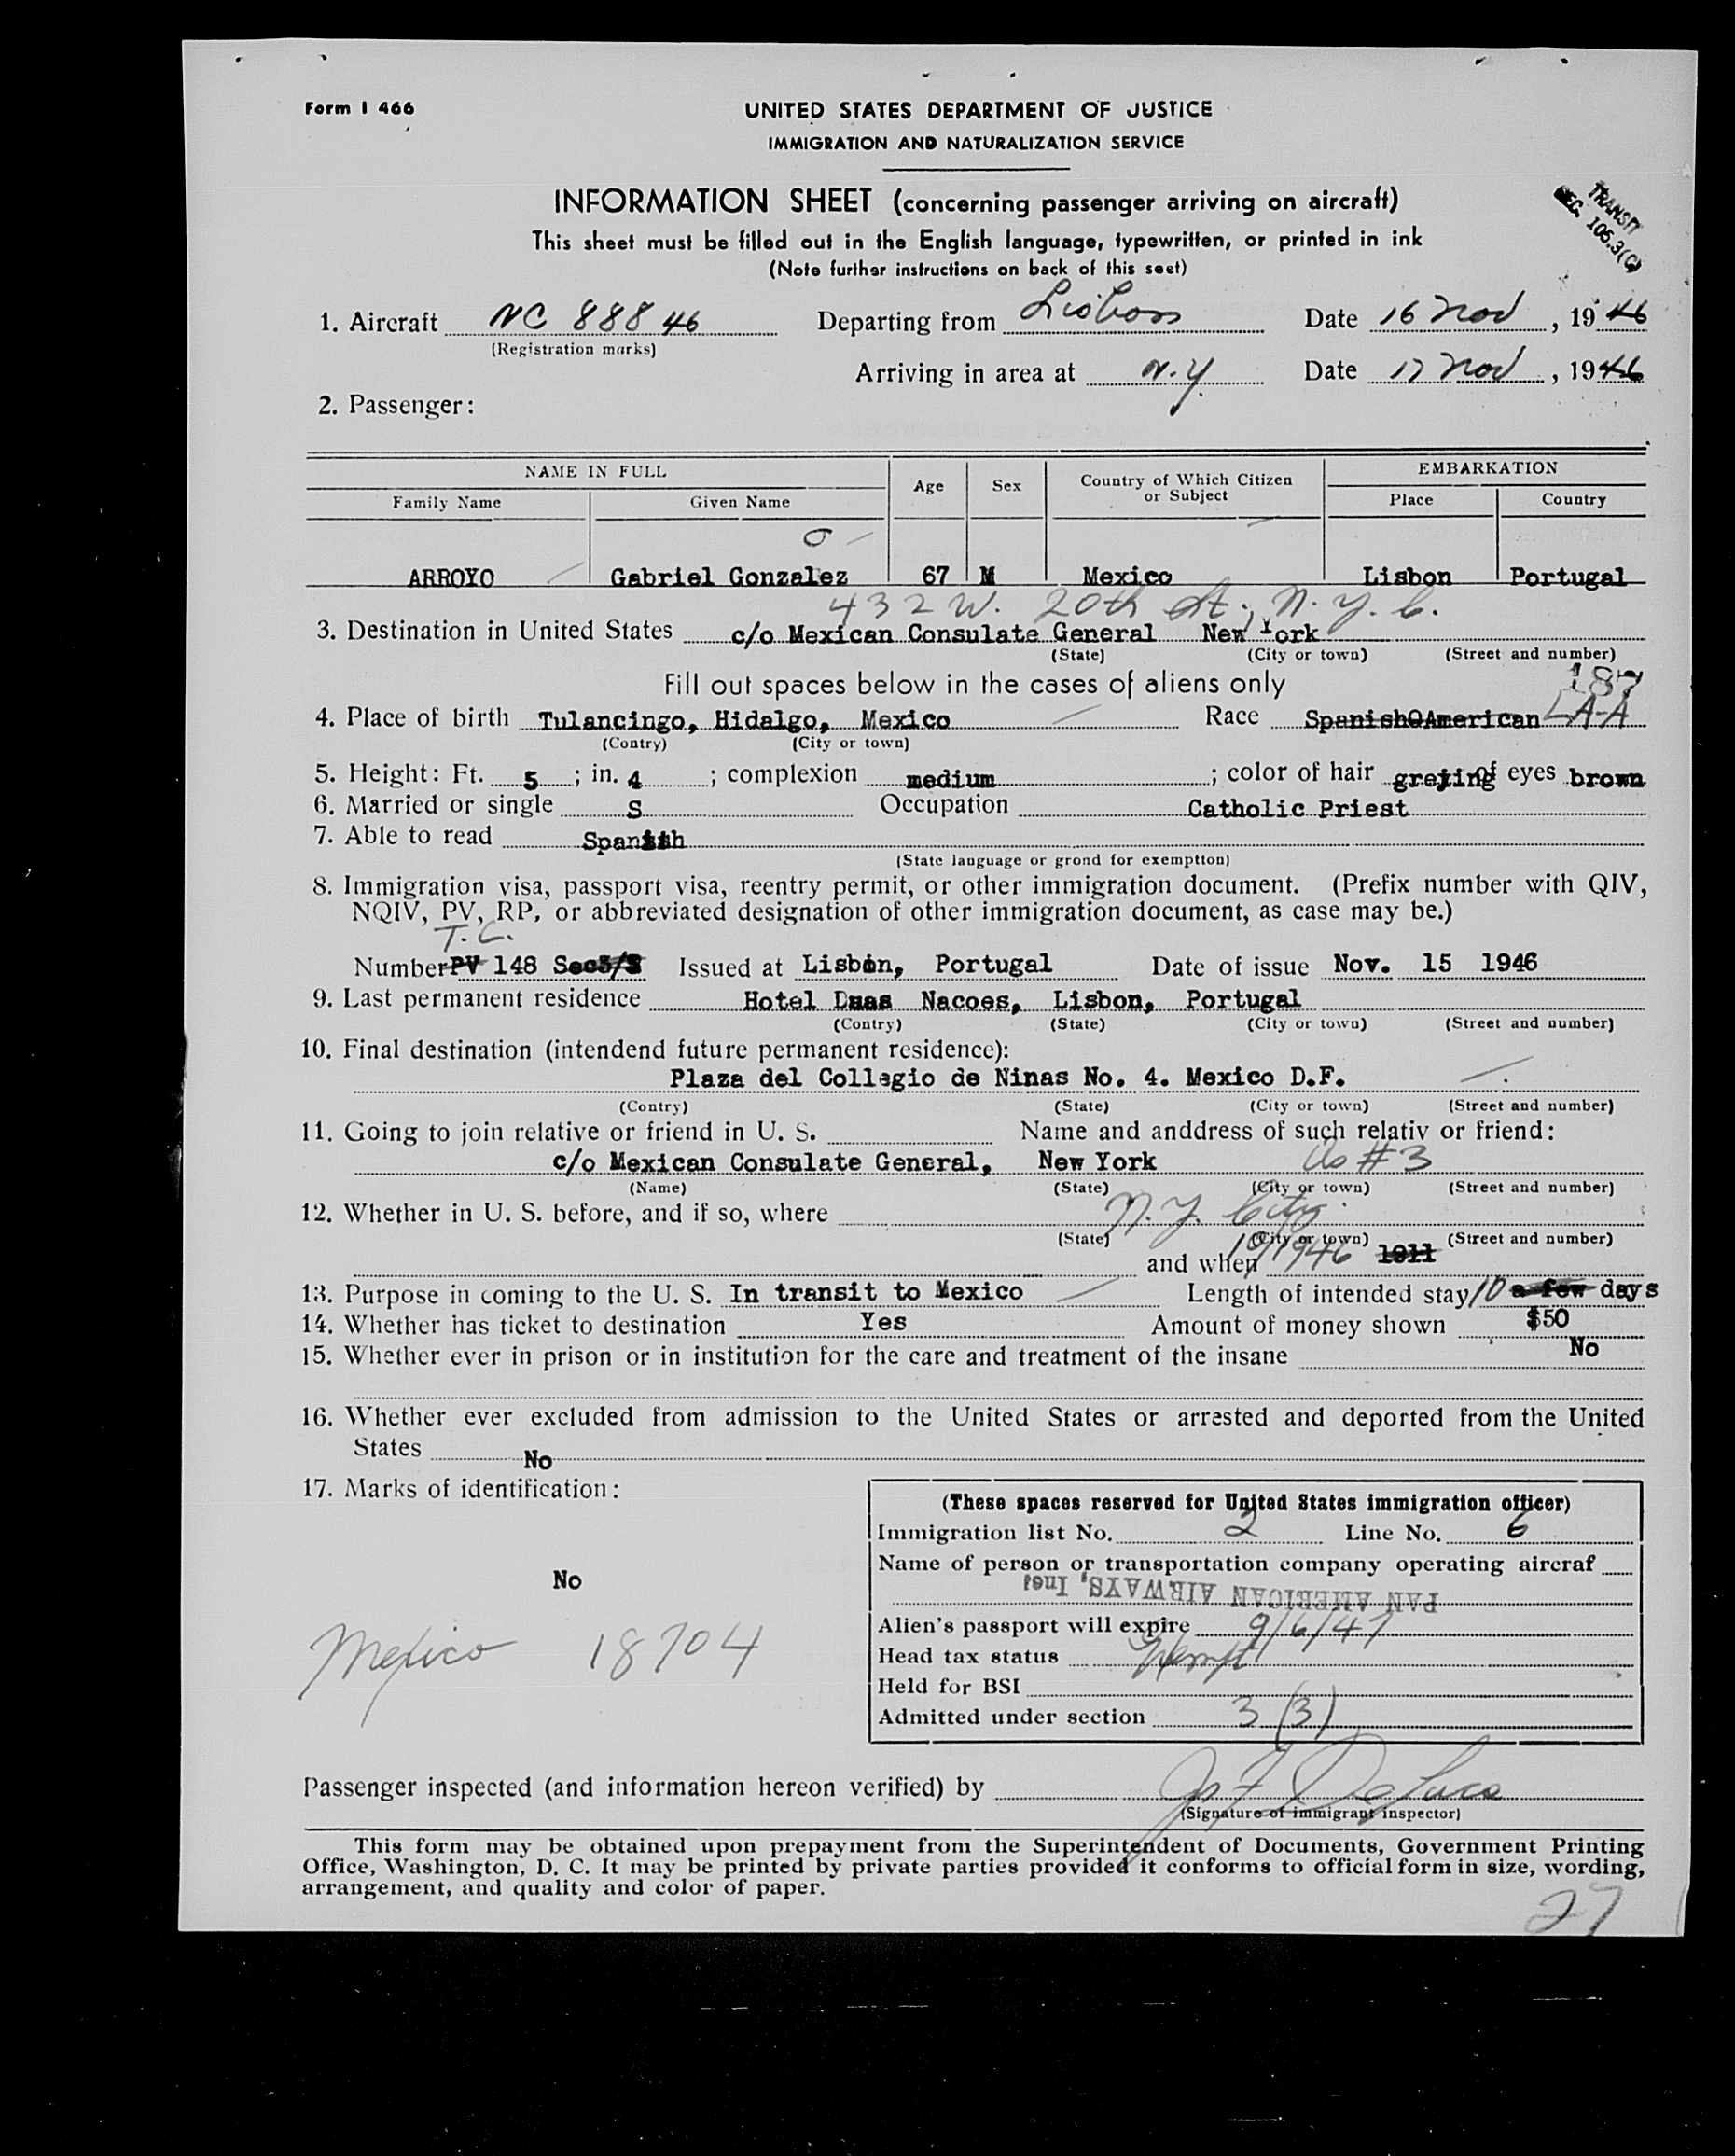 Form I 466
UNITED STATES DEPARTMENT OF JUSTICE
IMMIGRATION AND NATURALIZATION SERVICE
INFORMATION SHEET (concerning passenger arriving on aircraft)
TRANSIT
SEC. 105.3(C)
This sheet must be filled out in the English language, typewritten, or printed in ink
(Note further instructions on back of this seet)
1. Aircraft NC 88846 Departing from Lisbon Date 16 Nov, 1946
(Registration marks)
Arriving in area at N.Y. Date 17 Nov, 1946
2. Passenger:
NAME IN FULL Age Sex Country of Which Citizen or Subject EMBARKATION
Family Name Given Name Place Country
ARROYO Gabriel Gonzalez 67 M Mexico Lisbon Portugal
432 W. 20th St., N.Y.C.
3. Destination in United States c/o Mexican Consulate General New York
(State) (City or town) (Street and number)
Fill out spaces below in the cases of aliens only
187
4. Place of birth Tulancingo, Hidalgo, Mexico Race SpanishOAmerican LA-A
(Contry) (City or town)
5. Height: Ft. 5; in. 4; complexion medium; color of hair greying of eyes brown
6. Married or single S Occupation Catholic Priest
7. Able to read Spanish
(State language or grond for exemptton)
8. Immigration visa, passport visa, reentry permit, or other immigration document. (Prefix number with QIV,
NQIV, PV, RP, or abbreviated designation of other immigration document, as case may be.)
T.C.
Number PV 148 Sec3/3 Issued at Lisbon, Portugal Date of issue Nov. 15 1946
9. Last permanent residence Hotel Duas Nacoes, Lisbon, Portugal
(Contry) (State) (City or town) (Street and number)
10. Final destination (intendend future permanent residence):
Plaza del Collegio de Ninas No. 4. Mexico D.F.
(Contry) (State) (City or town) (Street and number)
11. Going to join relative or friend in U. S. Name and anddress of such relativ or friend:
c/o Mexican Consulate General, New York #3
(Name) (State) (City or town) (Street and number)
12. Whether in U. S. before, and if so, where N.Y. City
(State) (City or town) (Street and number)
and when 10/1946 1911
13. Purpose in coming to the U. S. In transit to Mexico Length of intended stay 10 a few days
14. Whether has ticket to destination Yes Amount of money shown $50
15. Whether ever in prison or in institution for the care and treatment of the insane No
16. Whether ever excluded from admission to the United States or arrested and deported from the United
States No
17. Marks of identification:
No
Mexico 18704
(These spaces reserved for United States immigration officer)
Immigration list No. 2 Line No. 6
Name of person or transportation company operating aircraf
PAN AMERICAN AIRWAYS, Inc.
Alien's passport will expire 9/6/47
Head tax status Exempt
Held for BSI
Admitted under section 3 (3)
Passenger inspected (and information hereon verified) by
(Signature of immigrant inspector)
This form may be obtained upon prepayment from the Superintendent of Documents, Government Printing
Office, Washington, D. C. It may be printed by private parties provided it conforms to official form in size, wording,
arrangement, and quality and color of paper.
27